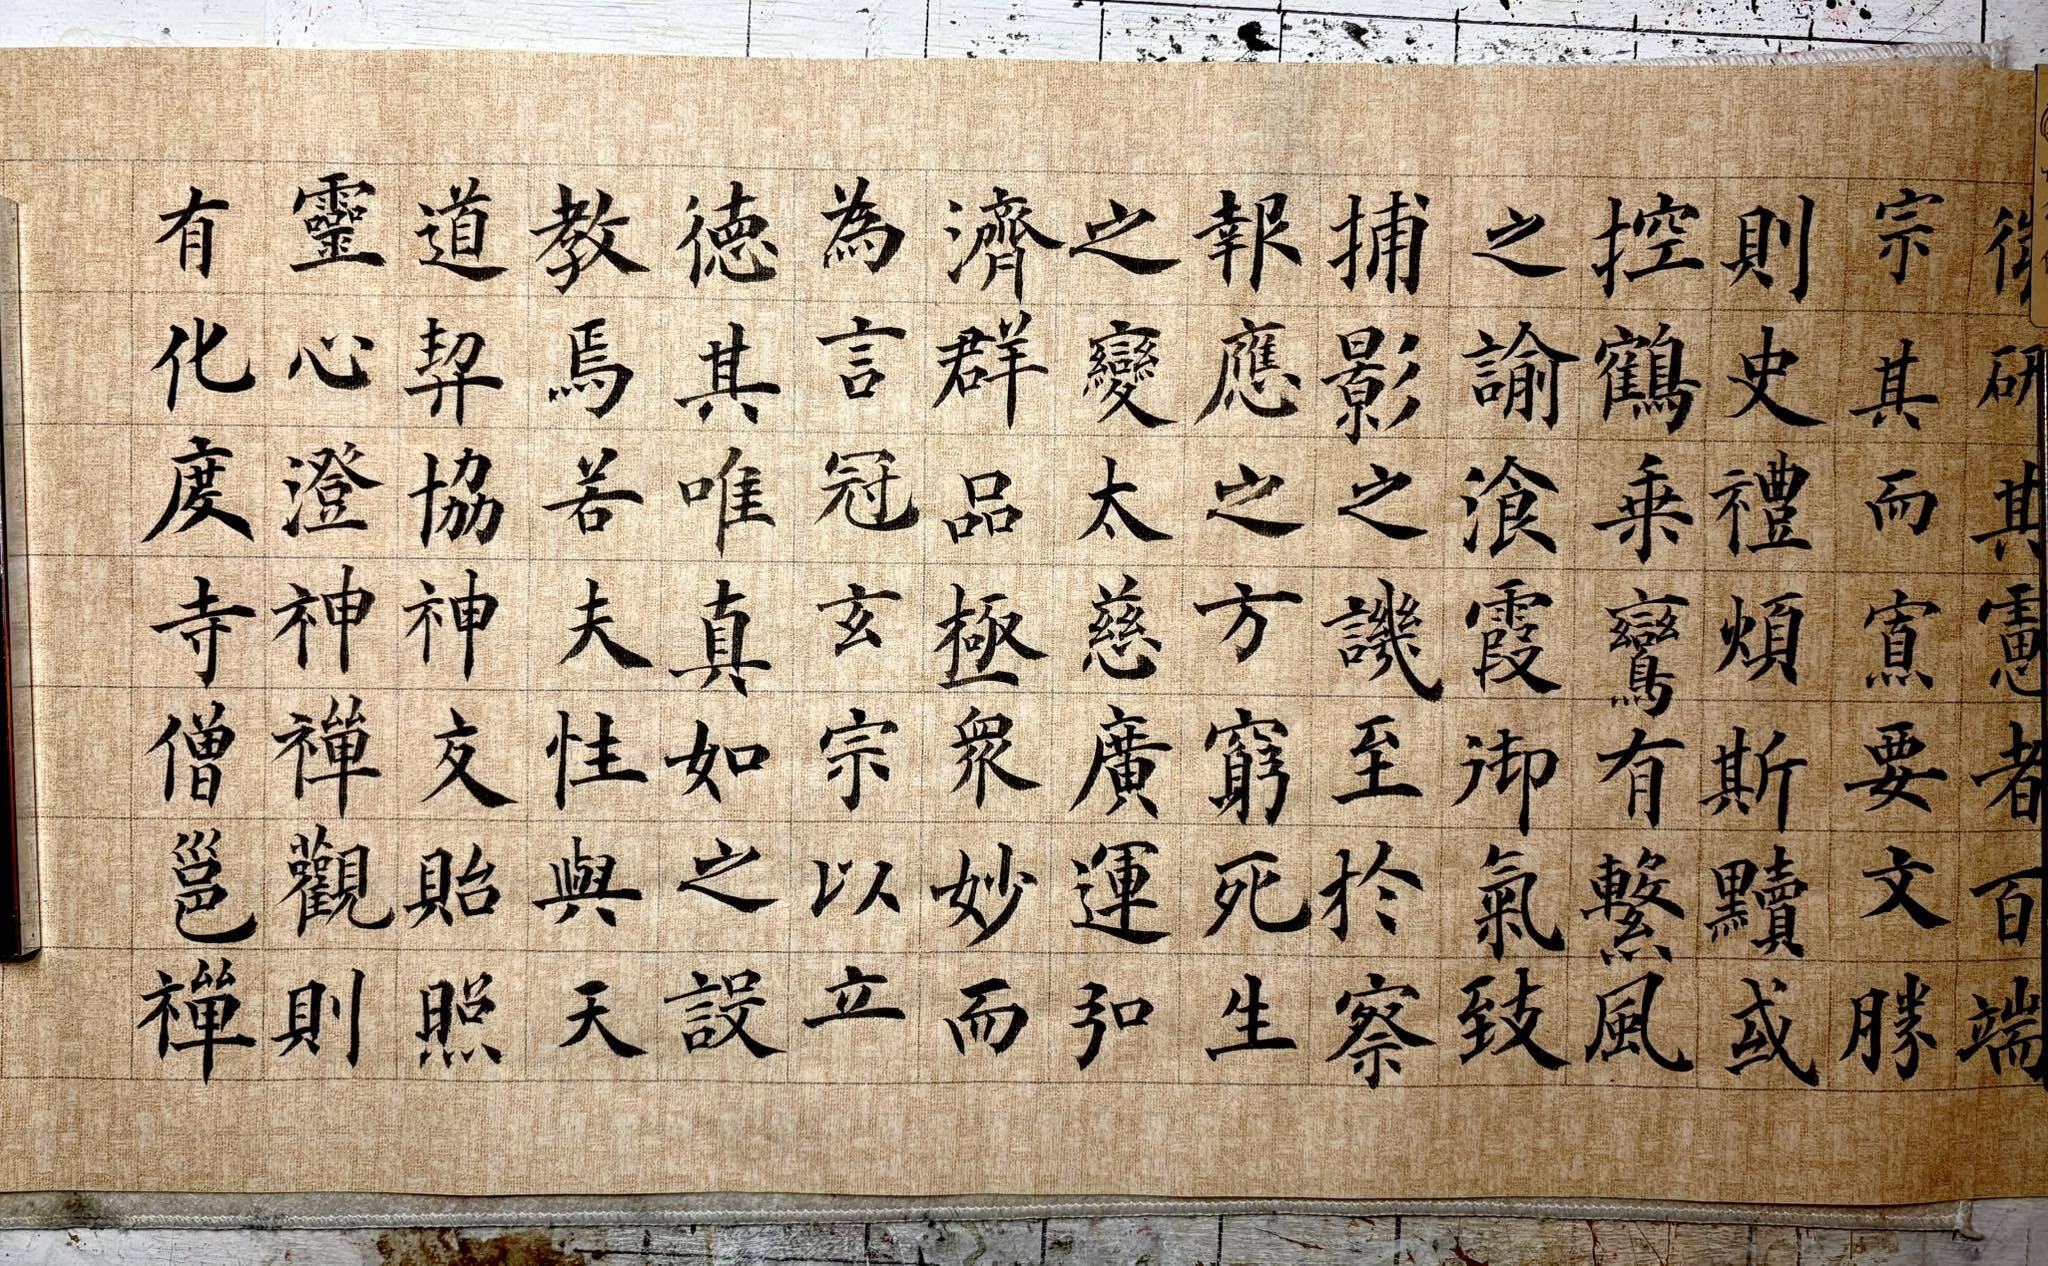 微研其慮者百端
宗其而寡要文勝
則史禮煩斯黷或
控鶴乗鸞有繫風
之諭湌霞御氣致
捕影之譏至於察
報應之方窮死生
之變太慈廣運弘
濟群品極衆妙而
為言冠玄宗以立
徳其唯真如之設
教焉若夫性與天
道契協神交貽照
靈心澄神禪觀則
有化度寺僧邕禪